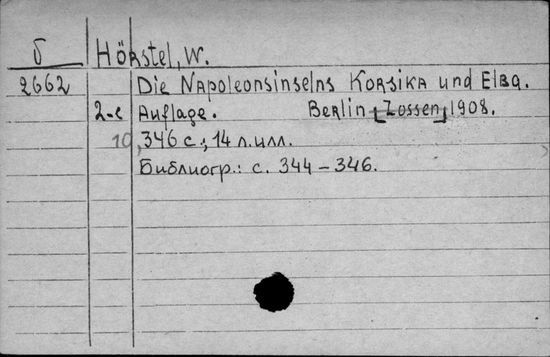 δ Hörstel, W.
2662 Die Napoleonsinselns Korsika und Elba.
2-е Auflage. Berlin [Zossen], 1908.
10, 346 с., 14 л.илл.
Библиогр.: с. 344-346.